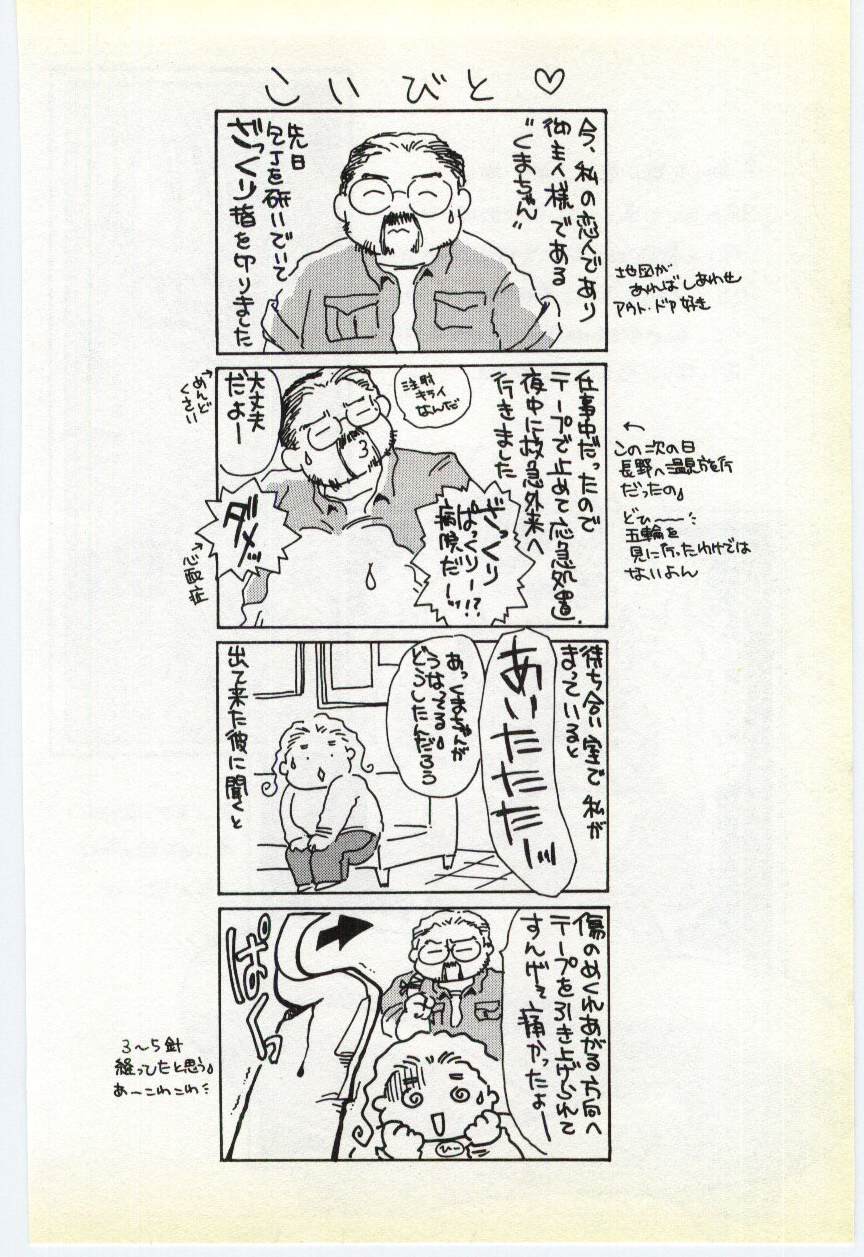 こいびと♡
今、私の恋人であり
御主人様である
“くまちゃん”
先日
包丁を研いでいて
ざっくり指を切りました
地図が
あればしあわせ
アウト・ドア好き
仕事中だったので
テープで止めて応急処置。
夜中に救急外来へ
行きました
注射
キライ
なんだ
大丈夫
だよー
←めんど
くさい
ざっくり
ぱっくりー!?
病院だーッ!!
ダメッ
←心配症
←
この次の日
長野へ温泉旅行
だったの。
どひー〜
五輪を
見に行ったわけでは
ないよん
待ち合い室で私が
まっていると
あいたたたーッ
あっくまちゃんが
うなってる。
どうしたんだろう
出て来た彼に聞くと
傷のめくれあがる方向へ
テープを引き上げられて
すんげェ痛かったよー
ぱくっ
ひー
3〜5針
縫ってたと思う。
あーこわこわ